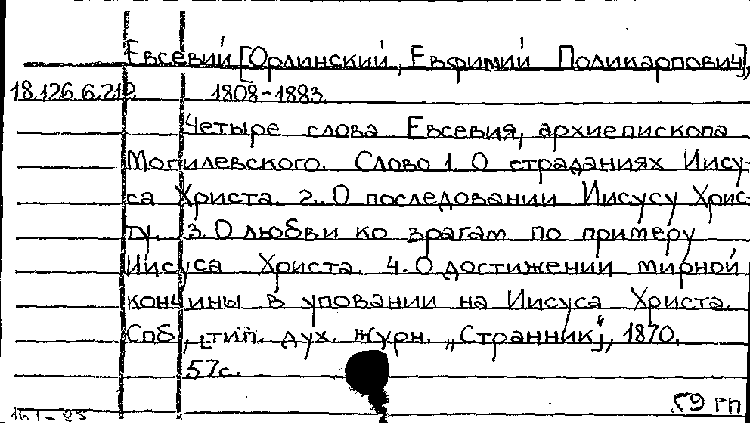 Евсевий [Орлинский, Евфимий Поликарпович],
18.126.6.212 1808-1883.
Четыре слова Евсевия, архиепископа
Могилевского. Слово 1. О страданиях Иису-
са Христа. 2. О последовании Иисусу Хрис-
ту. 3. О любви ко врагам по примеру
Иисуса Христа. 4. О достижении мирной
кончины в уповании на Иисуса Христа.
Спб, [тип. дух. журн. „Странник"], 1870.
57с.
59 гп